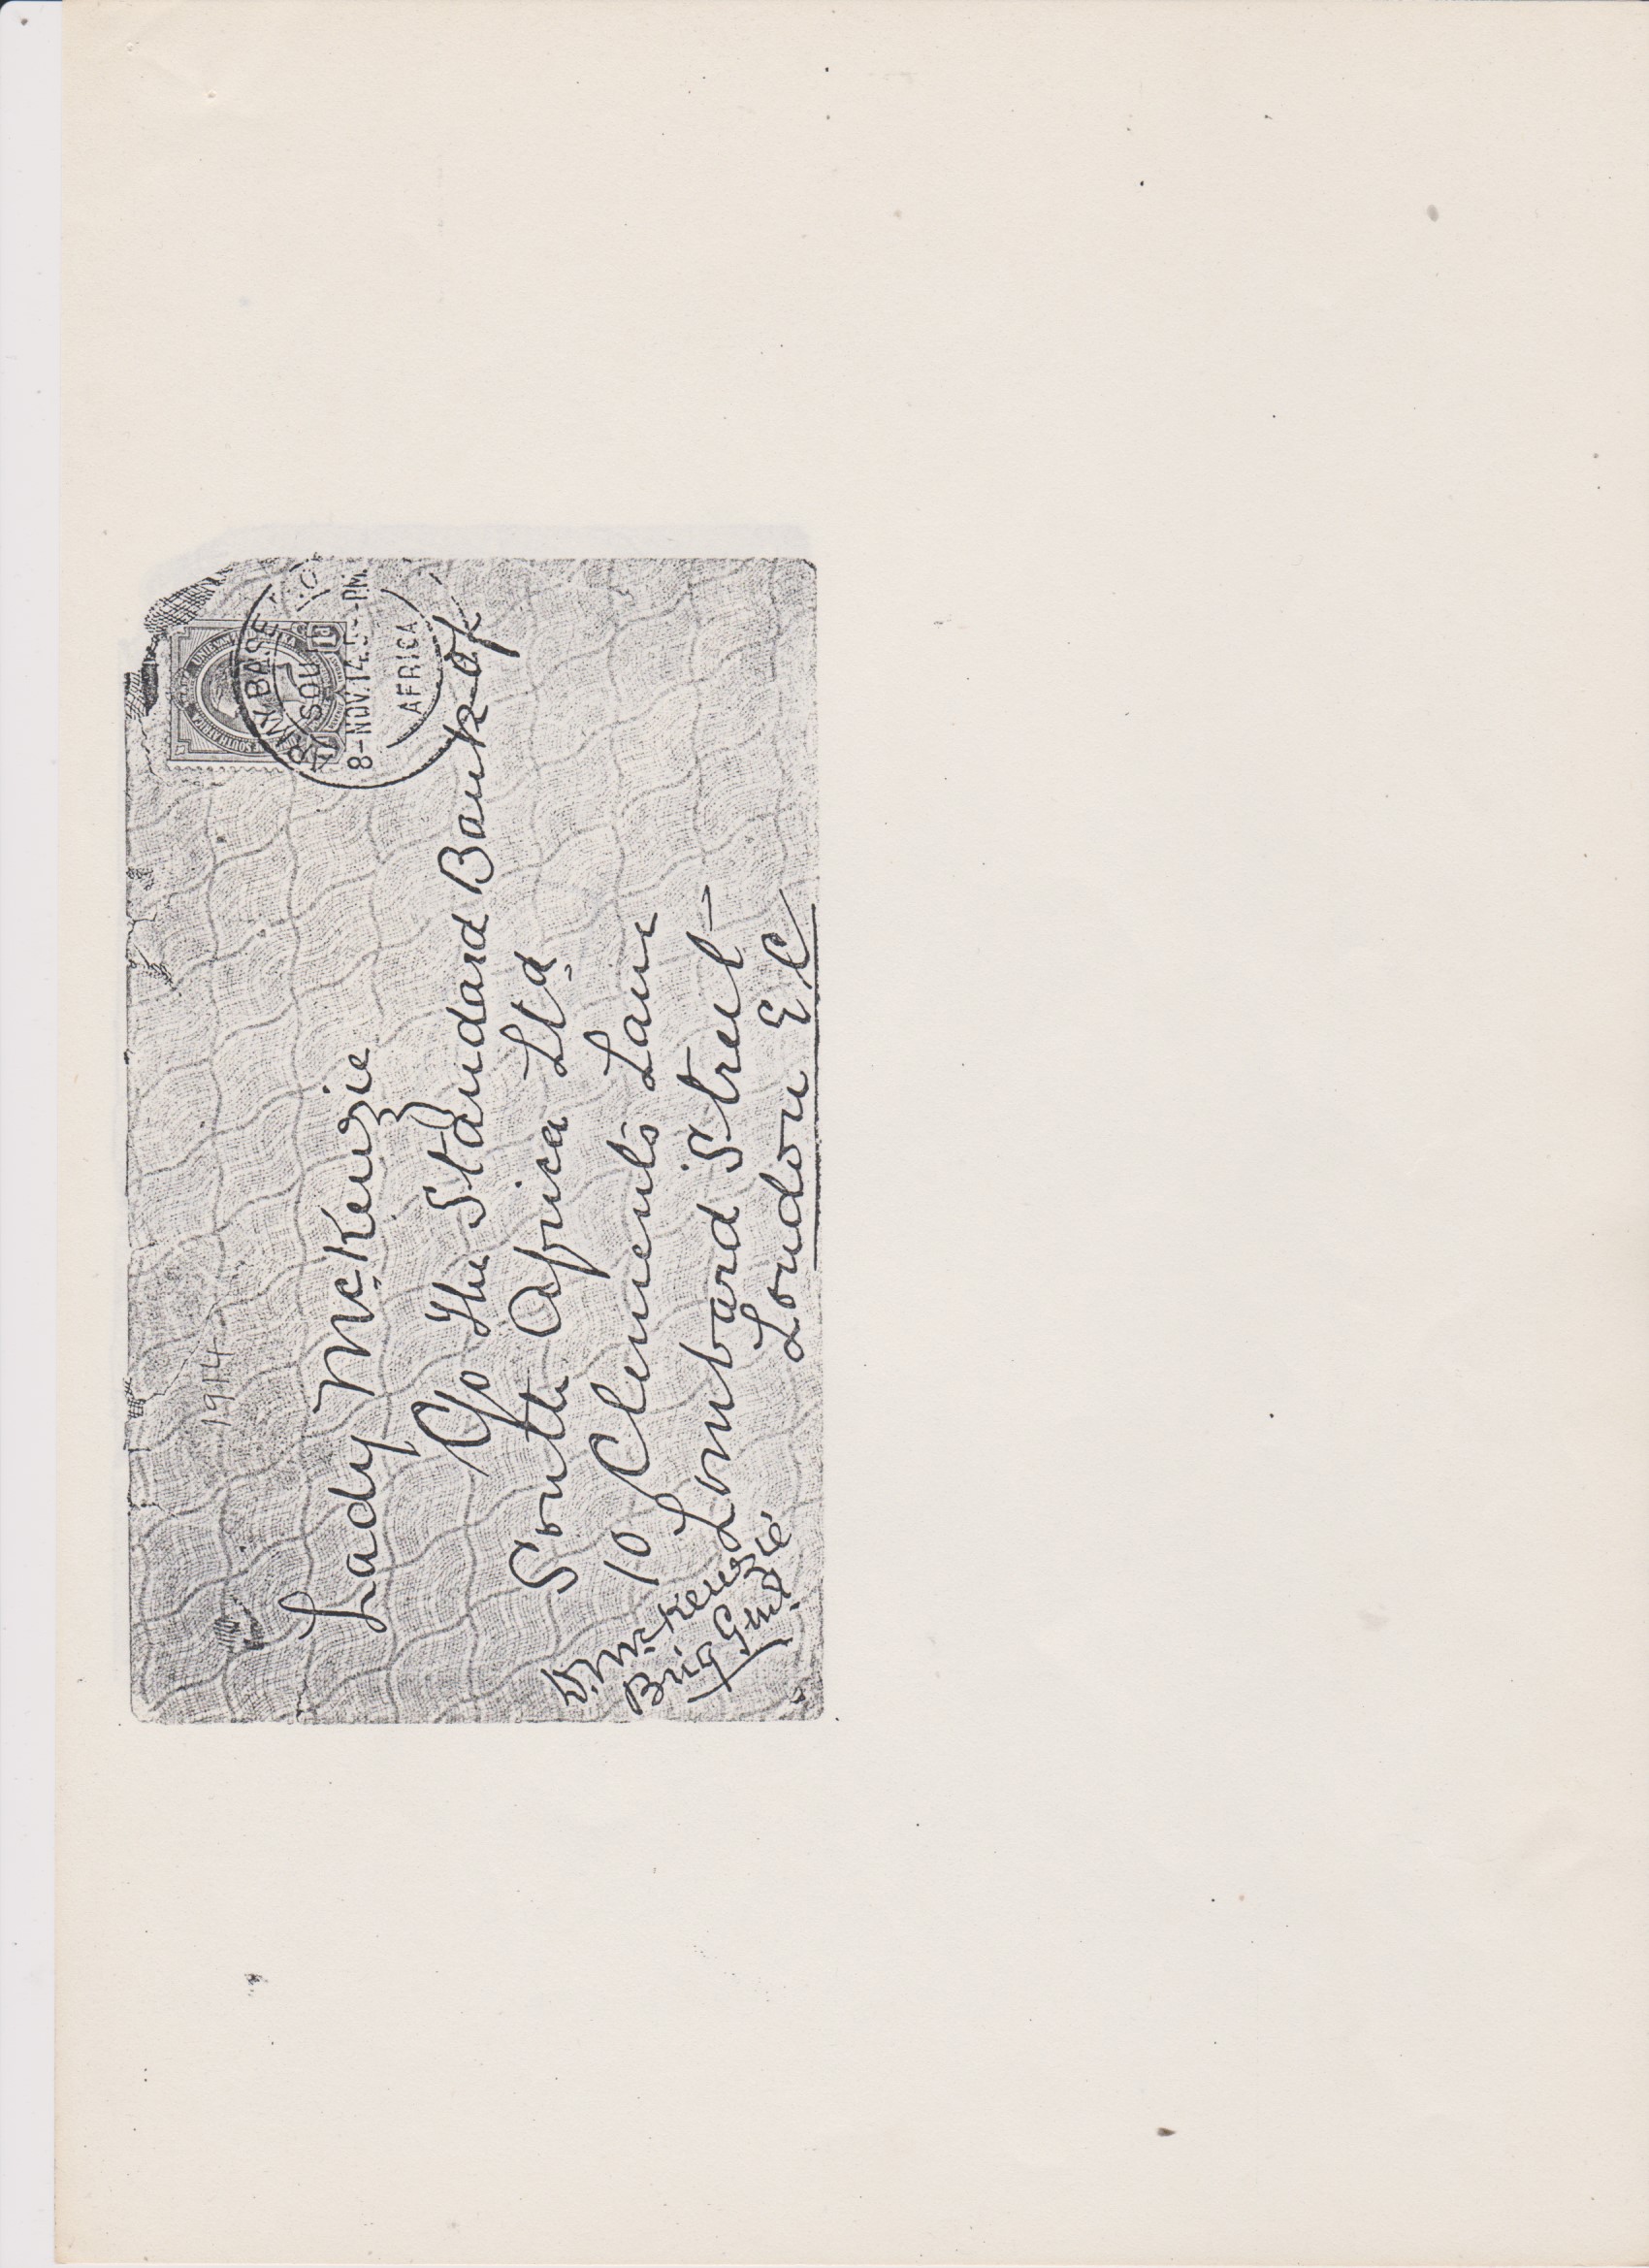 1914
ARMY BASE
SOU
8-NOV.14.5 -PM.
AFRICA
Lady McKenzie
C/o The Standard Bank of
South Africa Ltd
10 Clements Lane
Lombard Street
London E C
D. McKenzie
Brig Genl